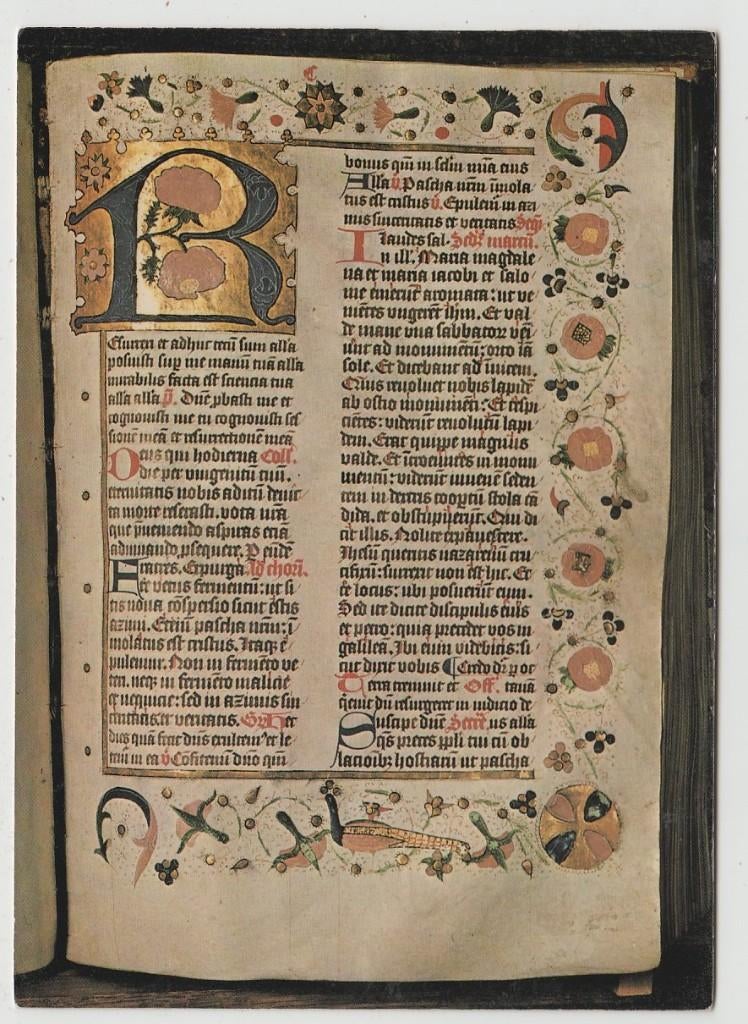 Resurexi et adhuc tecū sum alla
posuisti sup me manū tuā alla
mirabilis facta est sciencia tua
alla alla p̄. Dnē pbasti me et
cognouisti me tu cognouisti ses
sionē meā et resurrectionē meā
Deus qui hodierna Coll.
die per vnigenitū tuū.
eternitatis nobis aditū deuic
ta morte reserasti. vota nr̄a
que p̄ueniendo aspiras etiā
adiuuando psequere. P eūde
Fratres. Expurga Ad chorī.
te vetus fermentū: ut si
tis noua cōspersio sicut estis
azimi. Etenim pascha nr̄m: ī
molatus est cristus. Itaqȝ e
pulemur. Non in fermēto ve
teri. neqȝ in fermēto malicie
et nequicie: sed in azimis sin
ceritatis et veritatis. Gr̄ Hec
dies quā fecit dn̄s exultem et le
tem in ea v̄ Cōfitemī dn̄o qm̄
bonus qm̄ in sclm̄ mīa eius
Alla v̄. Pascha nr̄m īmola
tus est cristus v̄. Epulem in azi
mis sinceritatis et veritatis Seq̄
laudes sal. Scdȝ marcū.
In ill. Maria magdale
na et maria iacobi et salo
me emerūt aromata: ut ve
niētes vngerēt ihm̄. Et val
de mane vna sabbatoꝝ veī
unt ad monumētū: orto iā
sole. Et dicebant ad īuicem.
Quis reuoluet nobis lapidē
ab ostio monumēti: Et respi
ciētes: viderūt reuolutū lapi
dem. Erat quippe magnus
valde. Et ītroeūtes in monu
mentū: viderūt iuuenē seden
tem in dextris cooptū stola cā
dida. et obstupuerūt. Qui di
cit illis. Nolite expauescere.
Ihesū queritis nazarenū cru
cifixū: surrexit non est hic. Ec
ce locus: ubi posuerūt eum.
Sed ite dicite discipulis eius
et petro: quia precedet vos in
galilea. Ibi eum videbitis: si
cut dixit vobis Credo dr̄ p oct
Terra tremuit et Off.
q̄euit dū resurgeret in iudicio de
Suscipe dnē Secre. us alla
qs preces ppli tui cū ob
lacioibȝ hostiarū ut pascha